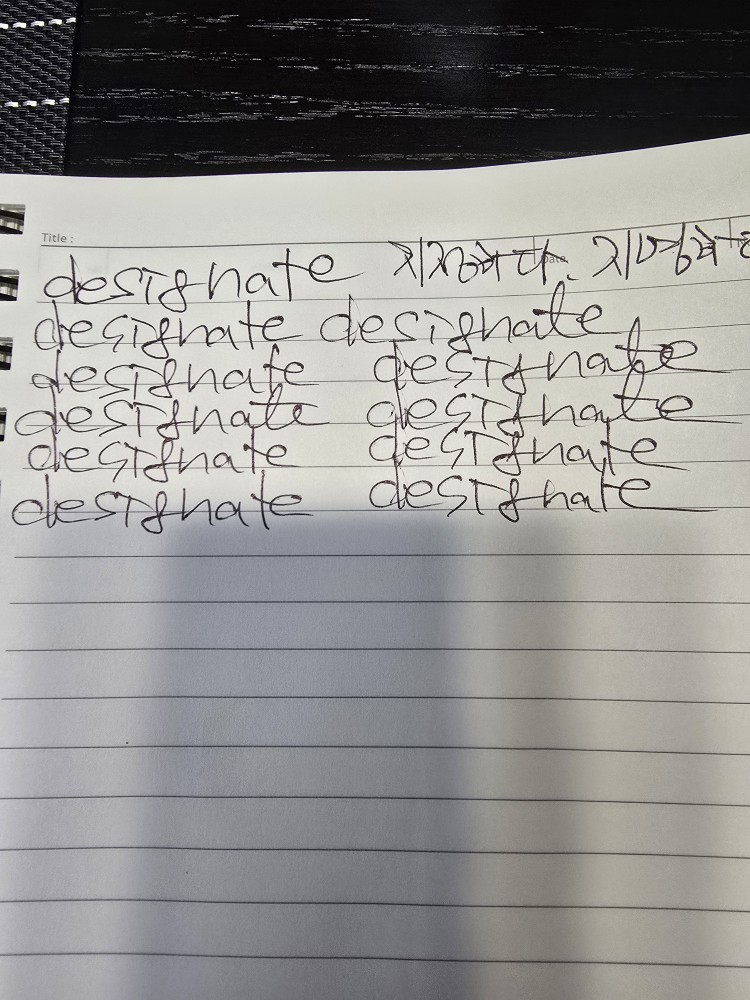 Title :
designate 지정하다. Date. 지명하다
designate designate
designate designate
designate designate
designate designate
designate designate